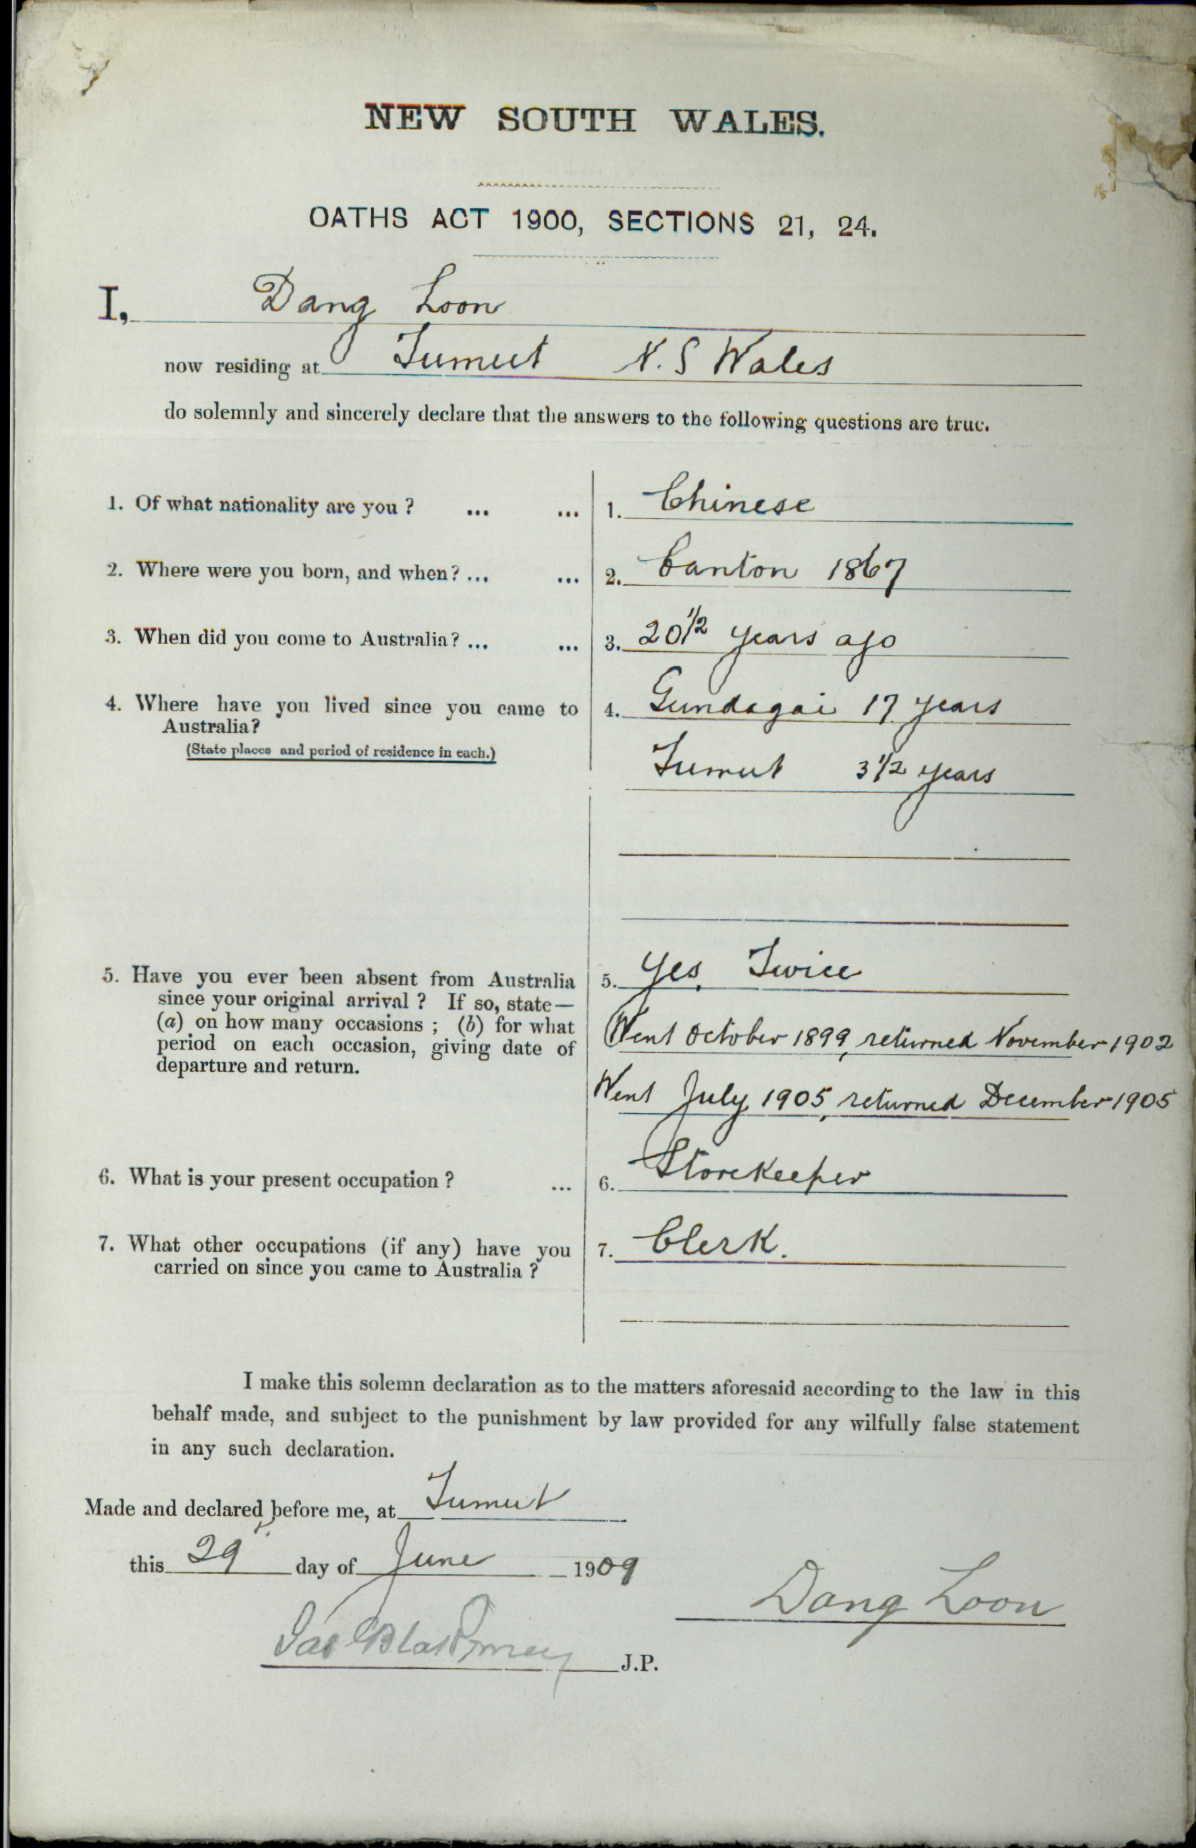 NEW SOUTH WALES.
OATHS ACT 1900, SECTIONS 21, 24.
I, Dang Loon
now residing at Tumut N. S Wales
do solemnly and sincerely declare that the answers to the following questions are true.
1. Of what nationality are you ? ... ... 1. Chinese
2. Where were you born, and when? ... ... 2. Canton 1867
3. When did you come to Australia? ... ... 3. 20 1/2 years ago
4. Where have you lived since you came to 4. Gundagai 17 years
Australia?
(State places and period of residence in each.)
Tumut 3 1/2 years
5. Have you ever been absent from Australia 5. Yes, Twice
since your original arrival ? If so, state—
(a) on how many occasions ; (b) for what Went October 1899, returned November 1902
period on each occasion, giving date of
departure and return.
Went July 1905, returned December 1905
6. What is your present occupation ? ... 6. Storekeeper
7. What other occupations (if any) have you 7. Clerk.
carried on since you came to Australia ?
I make this solemn declaration as to the matters aforesaid according to the law in this
behalf made, and subject to the punishment by law provided for any wilfully false statement
in any such declaration.
Made and declared before me, at Tumut
this 29 day of June 1909
Dang Loon
Jas J.P.